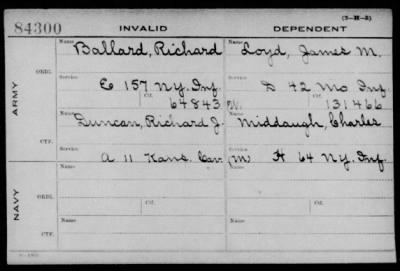 (3-H-3)
84300 INVALID DEPENDENT
Name Ballard, Richard Name Loyd, James M.
ARMY ORIG. Service E 157 N.Y. Inf. Service D 42 Mo Inf.
Ctf. 64843 W. Ctf. 131466
Name Duncan, Richard J. Name Middaugh, Charles
CTF. Service A 11 Kans. Cav. Service M H 64 N.Y. Inf.
NAVY ORIG. Name Ctf. Name Ctf.
CTF. Name Name